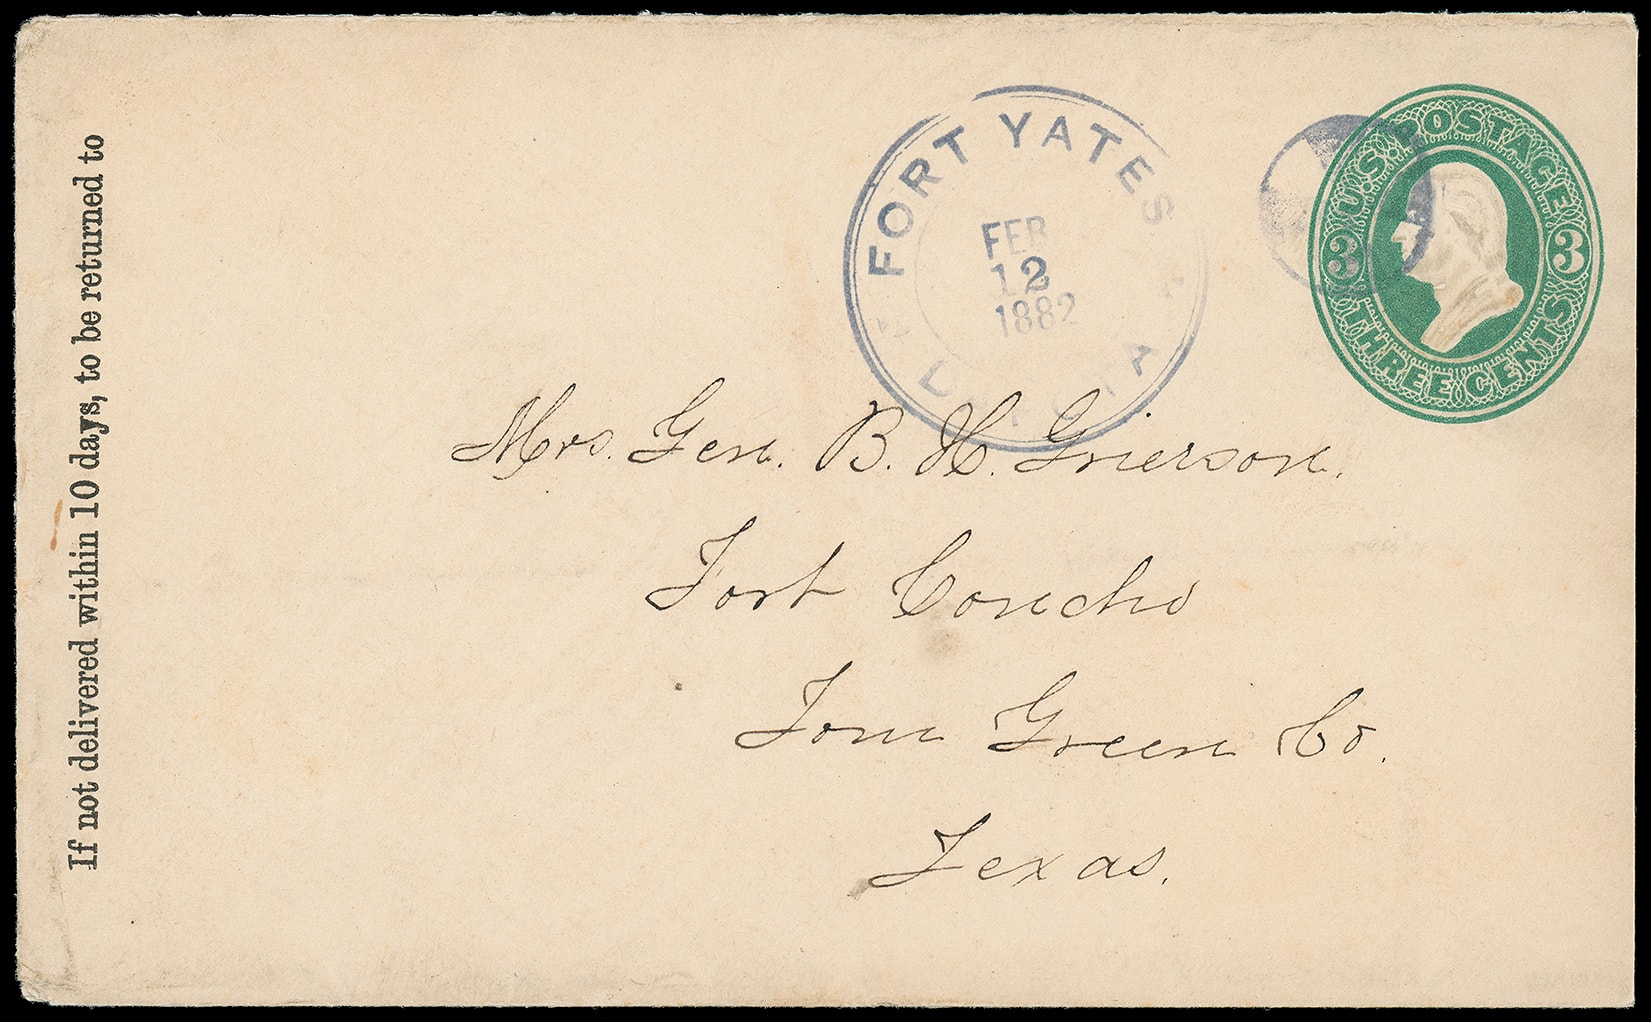 If not delivered within 10 days, to be returned to
FORT YATES
FEB
12
1882
DAKOTA
U.S. POSTAGE
3 3
THREE CENTS
Mrs. Gen. B. H. Grierson.
Fort Concho
Tom Green Co.
Texas.